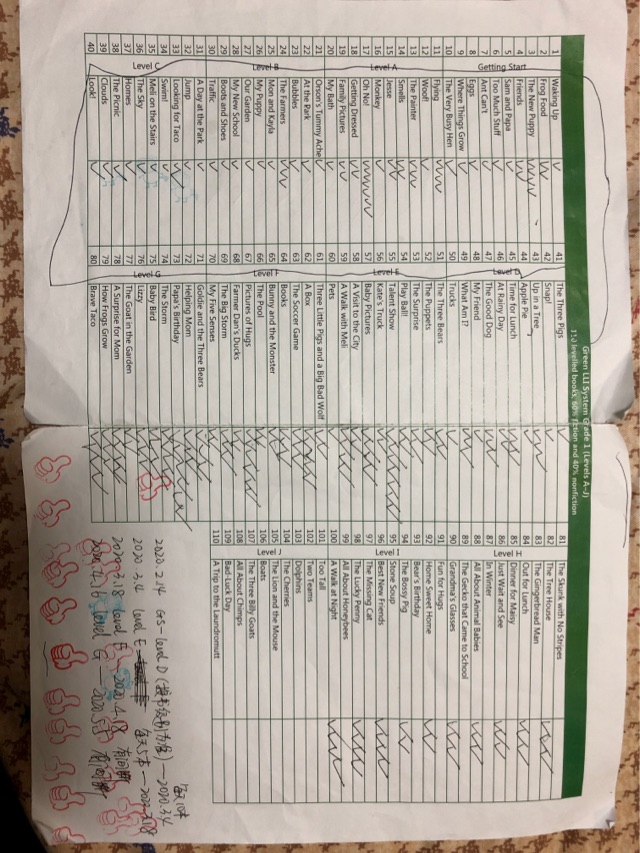 Green LLI System Grade 1 (Levels A–J)
110 levelled books, 60% fiction and 40% nonfiction
Getting Start
1 Waking Up
2 Frog Food
3 The New Puppy
4 Friends
5 Sam and Papa
6 Too Much Stuff
7 Ant Can't
8 Eggs
9 Where Things Grow
10 The Very Busy Hen
Level A
11 Flying
12 Woof!
13 The Painter
14 Smells
15 Jesse
16 Monkey
17 Oh No!
18 Getting Dressed
19 Family Pictures
20 My Bath
Level B
21 Orson's Tummy Ache
22 At the Park
23 Bubbles
24 The Farmers
25 Mon and Kayla
26 My Puppy
27 Our Garden
28 My New School
29 Boots and Shoes
30 Traffic
Level C
31 A Day at the Park
32 Jump
33 Looking for Taco
34 Swim!
35 Meli on the Stairs
36 The Sky
37 Homes
38 The Picnic
39 Clouds
40 Look!
Level D
41 The Three Pigs
42 Snap!
43 Up in a Tree
44 Apple Pie
45 Time for Lunch
46 At Rainy Day
47 The Good Dog
48 My Friend
49 What Am I?
50 Trucks
Level E
51 The Three Bears
52 The Puppets
53 The Surprise
54 Play Ball!
55 Talent Show
56 Kate's Truck
57 Baby Pictures
58 A Visit to the City
59 A Walk with Meli
60 Pets
Level F
61 Three Little Pigs and a Big Bad Wolf
62 A Box
63 The Soccer Game
64 Books
65 Bunny and the Monster
66 The Pool
67 Pictures of Hugs
68 Farmer Dan's Ducks
69 The Big Storm
70 My Five Senses
Level G
71 Goldie and the Three Bears
72 Helping Mom
73 Papa's Birthday
74 The Storm
75 Baby Bird
76 Lizzy
77 The Goat in the Garden
78 A Surprise for Mom
79 How Frogs Grow
80 Brave Taco
Level H
81 The Skunk with No Stripes
82 The Tree House
83 The Gingerbread Man
84 Out for Lunch
85 Dinner for Maisy
86 Just Wait and See
87 In Winter
88 All About Animal Babies
89 The Gecko that Came to School
90 Grandma's Glasses
Level I
91 Fun for Hugs
92 Home Sweet Home
93 Bear's Birthday
94 The Bossy Pig
95 Stone Soup
96 Best New Friends
97 The Missing Cat
98 The Lucky Penny
99 All About Honeybees
100 A Walk at Night
Level J
101 Too Tall
102 Two Teams
103 Dolphins
104 The Cherries
105 The Lion and the Mouse
106 Boats
107 The Three Billy Goats
108 All About Chimps
109 Bad-Luck Day
110 A Trip to the Laundromutt
每天10本
2020.2.14 GS-level D — 2020.3.4
2020.3.4 level E 每天5本 — 2020.3.18
2020.3.18 level F 2020.4.18 有间断
2020.4.16 level G